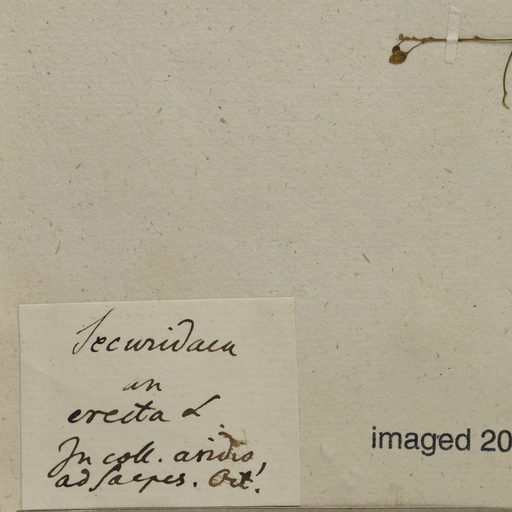 Securidaca
an
erecta L
In coll. aridis
ad Saepes. Oct!
imaged 20